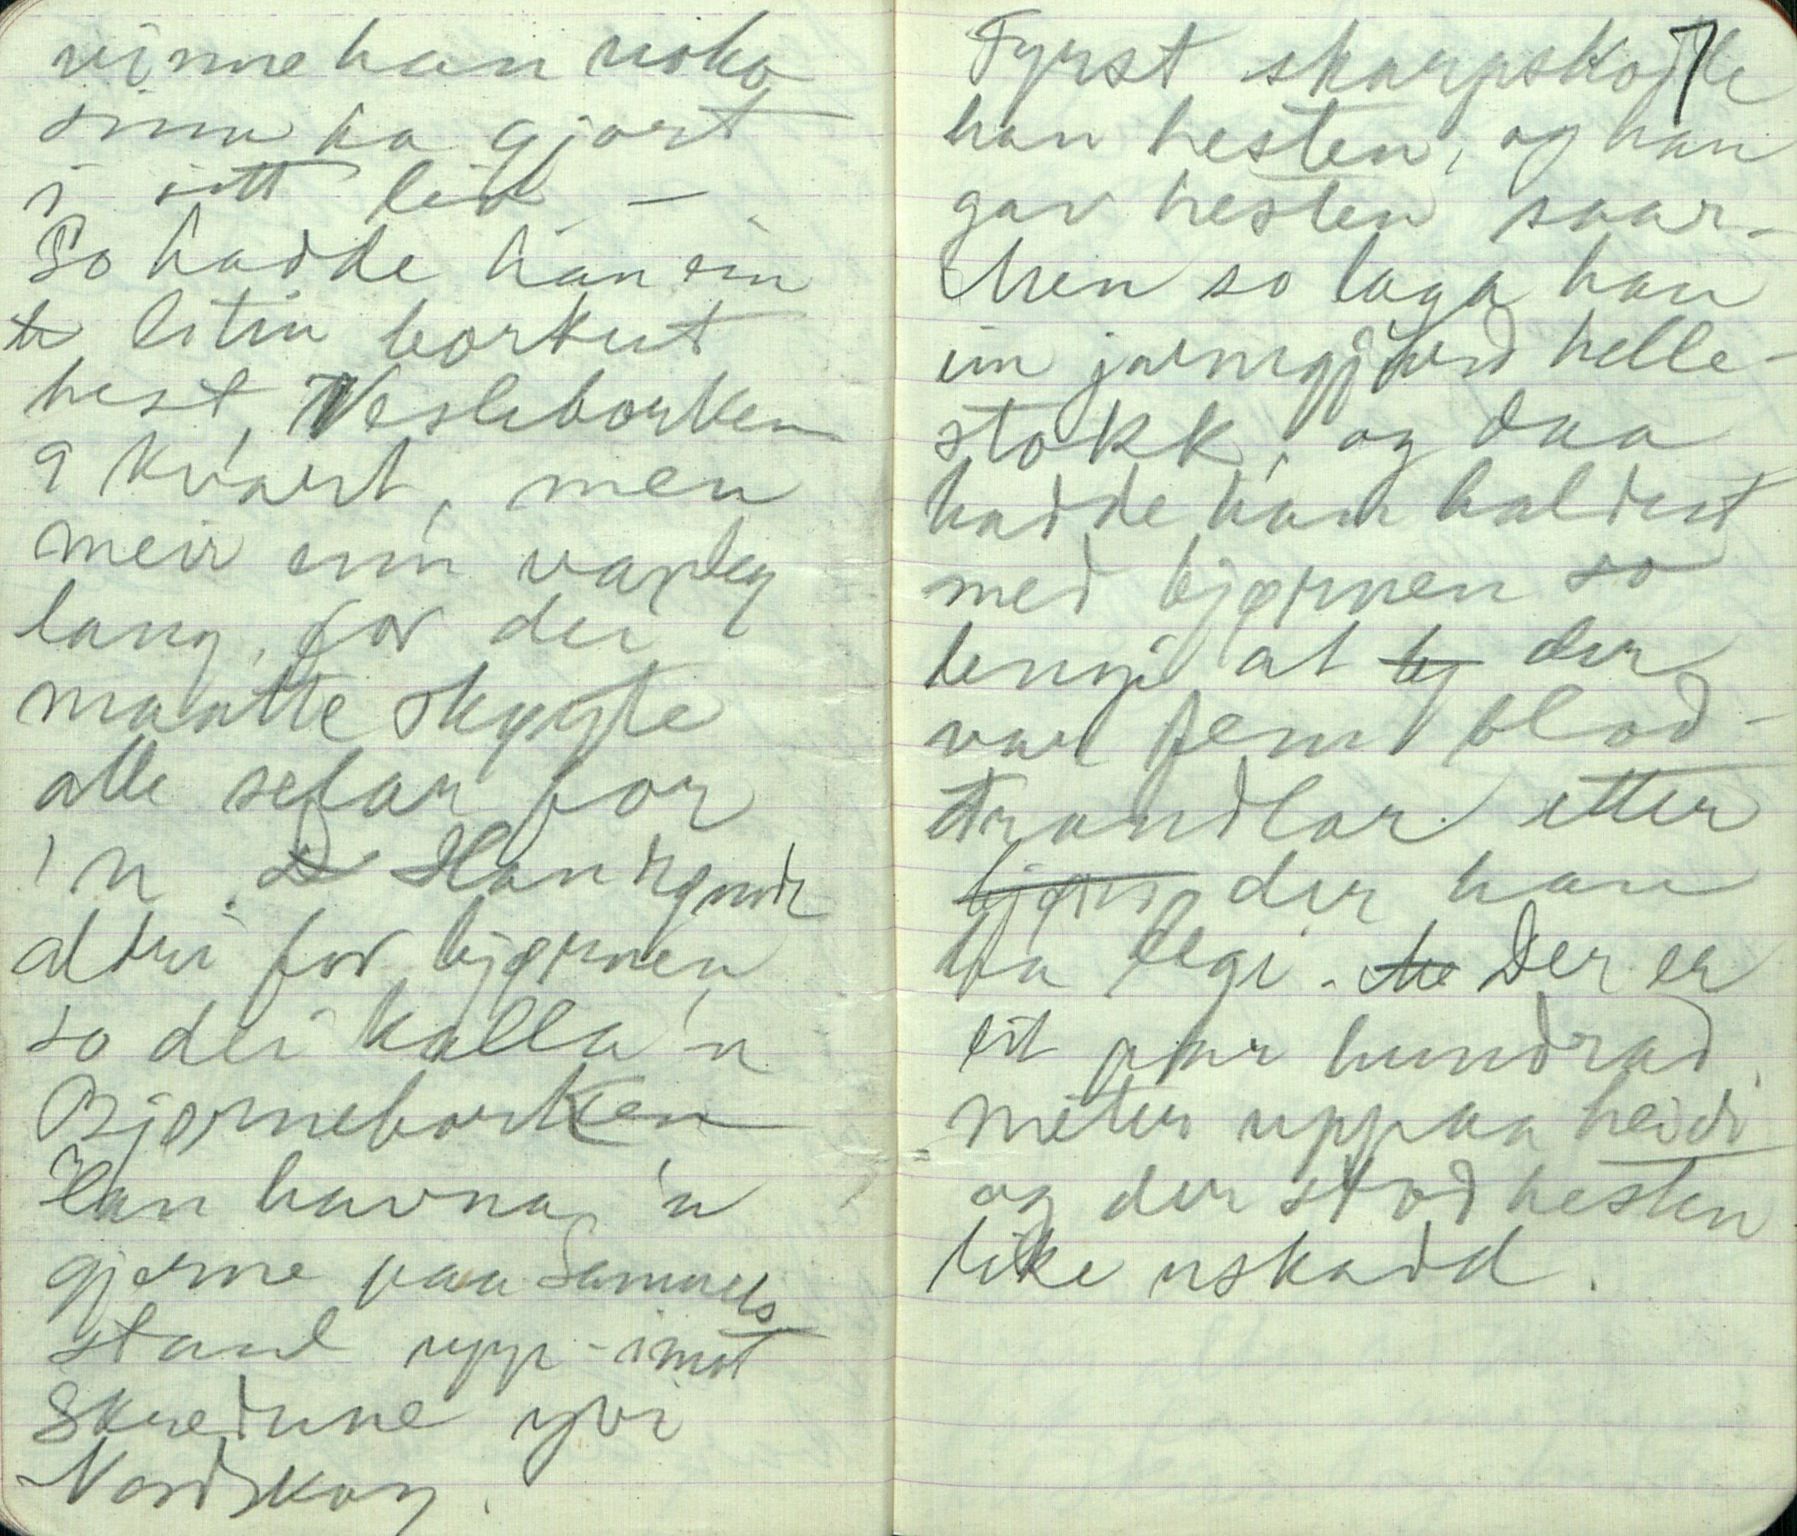 vinne han noko
sinn ha gjort
i sitt liv –
So hadde han ein
liten borkut
hest, Vesleborken
9 kvart, men
meir enn vanleg
lang, for dei
maatte skygte
alle selar for
'n. Han rymde
aldri for bjørnen
so dei kalla 'n
Bjørneborken
Han havna 'n
gjerne paa Sammels
staul upp-imot
Skredune yvi
Nordskog.
Fyrst skarpskodde
han hesten, og han
gav hesten saar-
Men so laga han
ein jarngjord helle-
stokk, og daa
hadde han haldest
med bjørnen so
lengi at der
var fem blod-
trandlar etter
der han
ha legi. Der er
eit par hundrad
meter uppaa heidi
og der stod hesten
like uskadd.